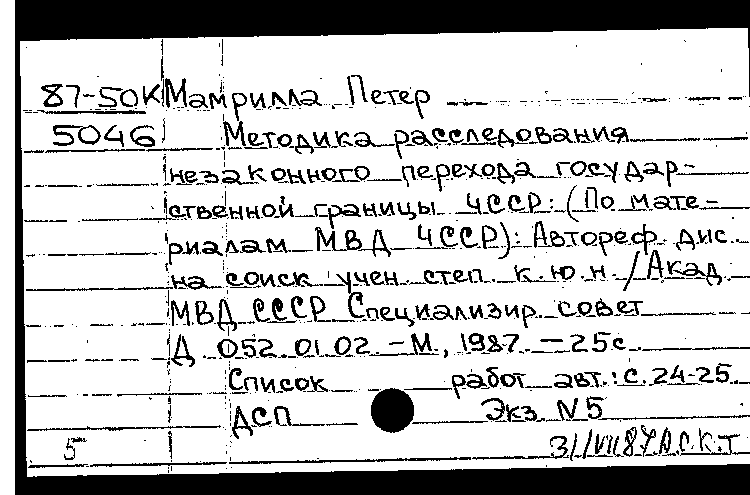 87-50К Мамрилла Петер
5046 Методика расследования
незаконного перехода государ-
ственной границы ЧССР: (По мате-
риалам МВД ЧССР): Автореф. дис.
на соиск учен. степ. к.ю.н. / Акад.
МВД СССР Специализир. совет
Д 052.01.02. - М., 1987. - 25с.
Список работ авт.: с. 24-25.
ДСП Экз. N5
5